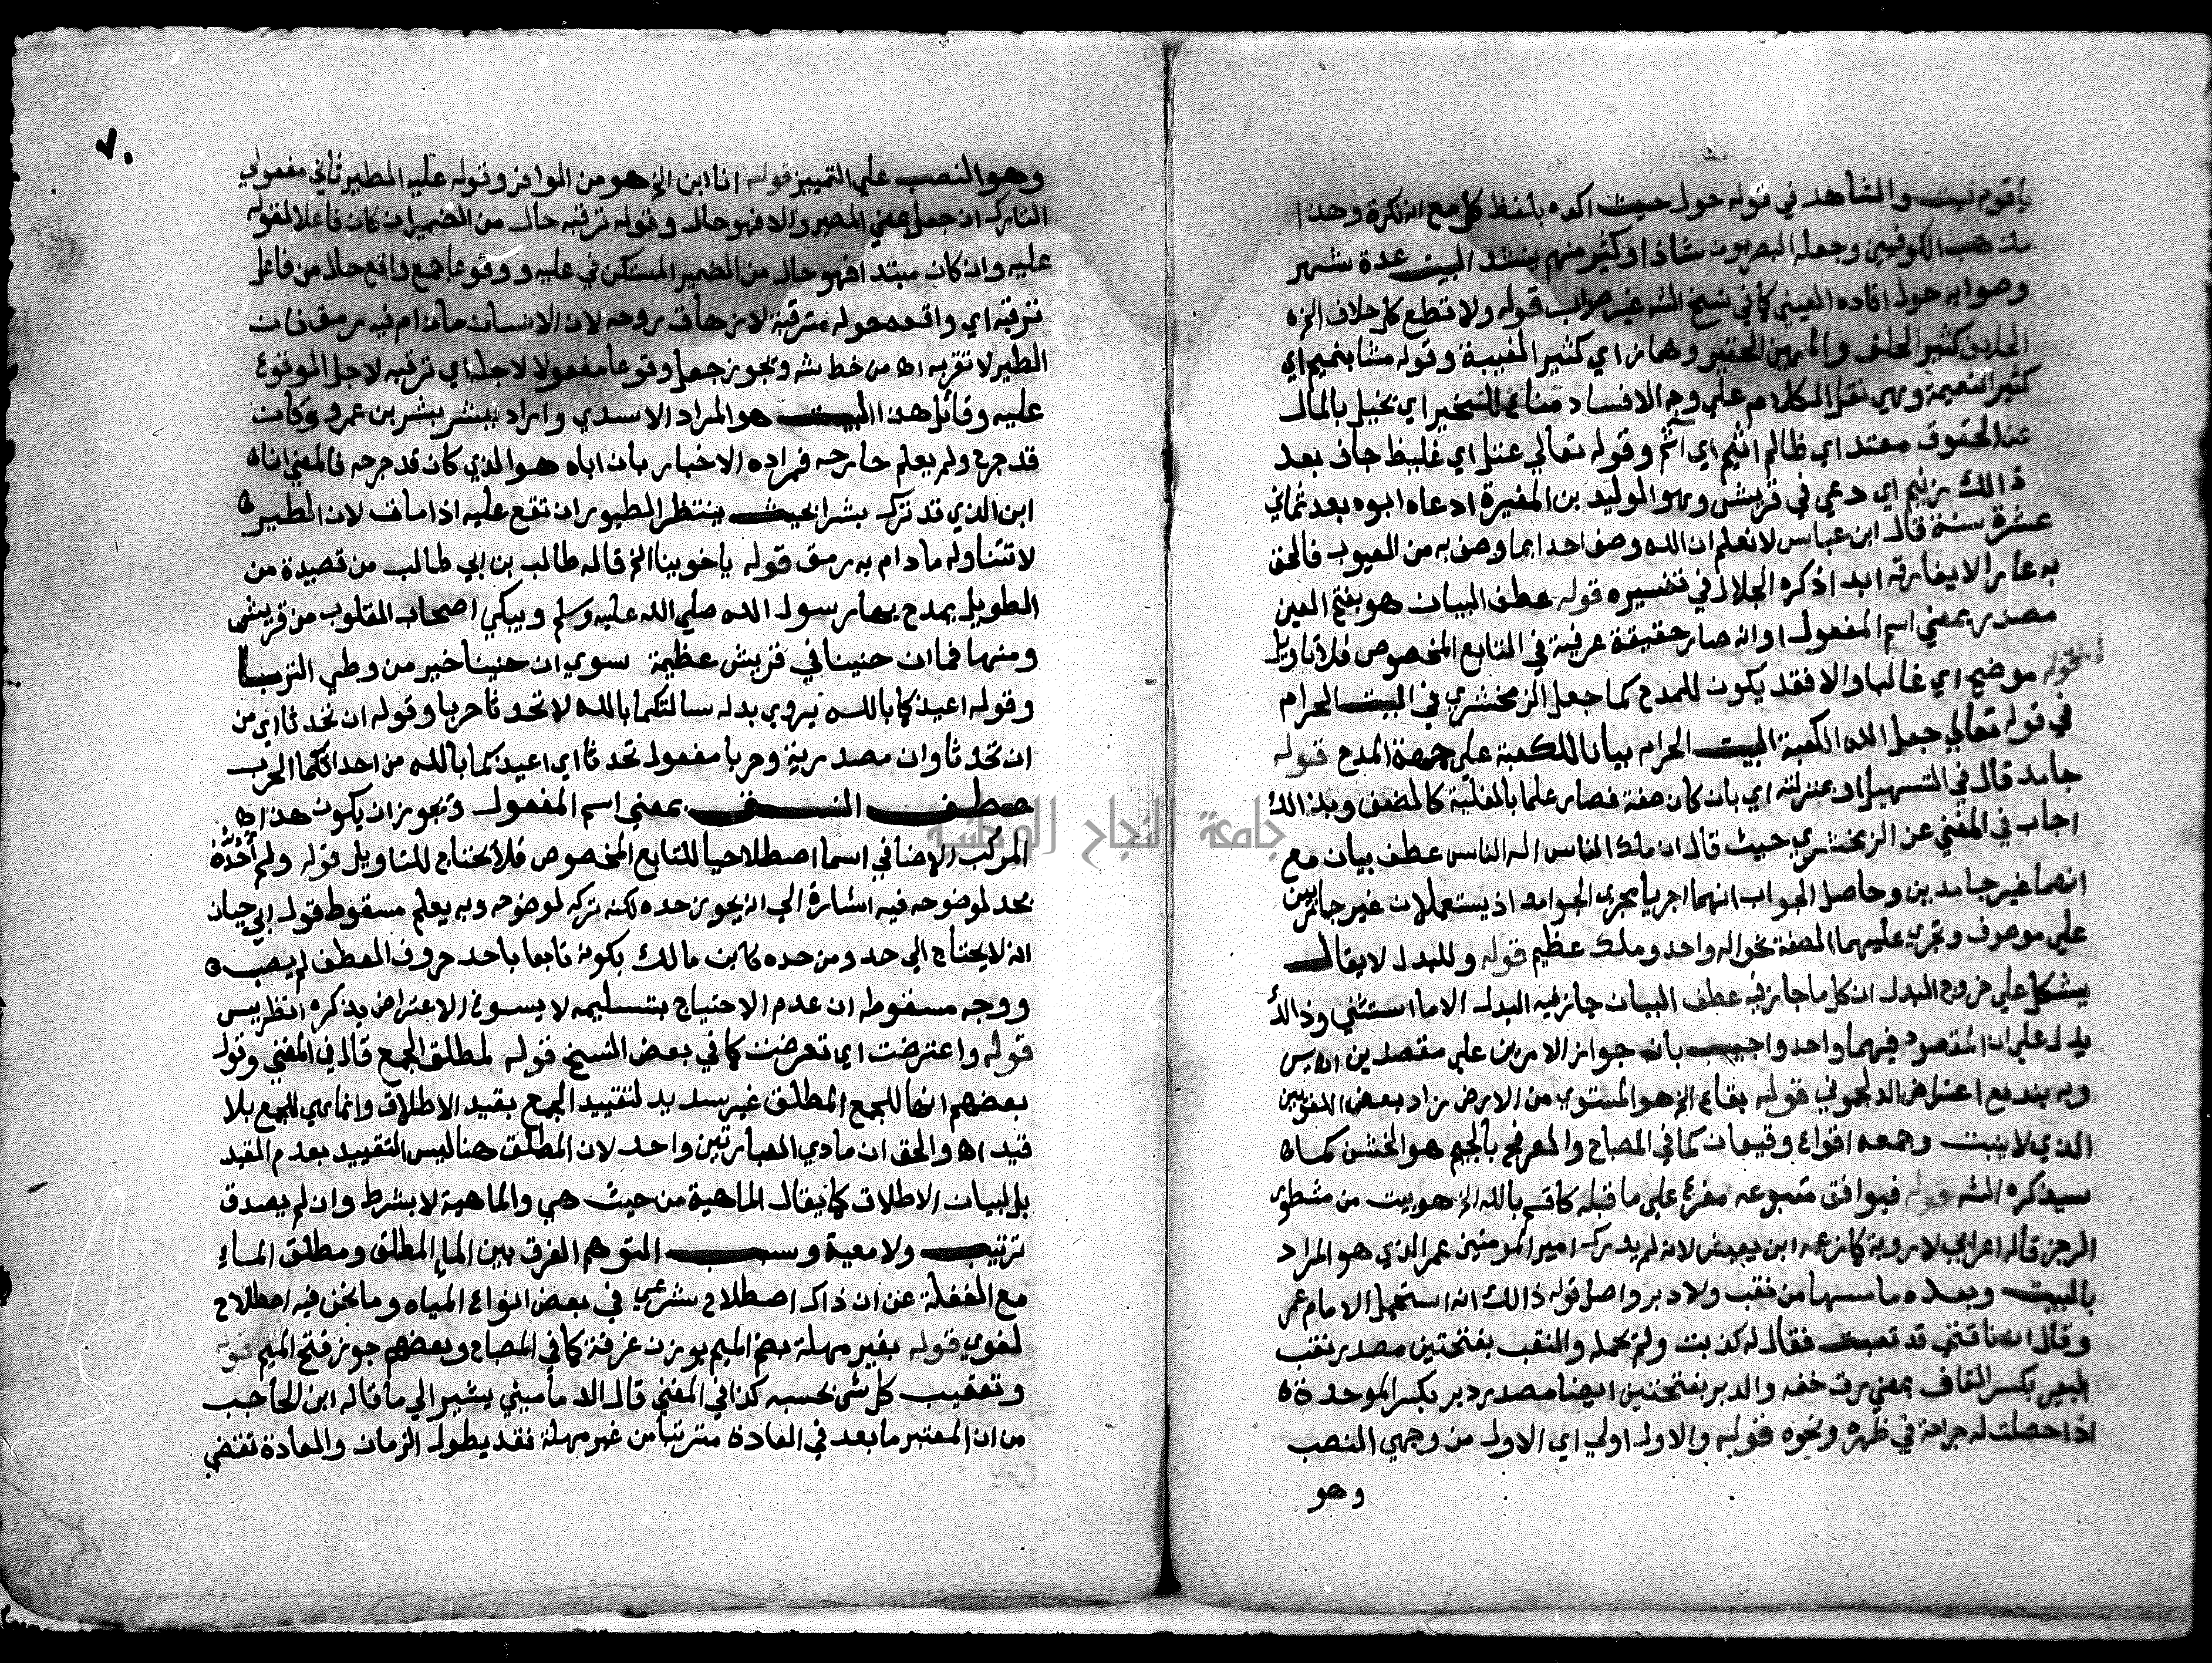 ياقوم نيت والشاهد في قوله حول حيث اكده بلفظ كل مع انه نكرة وهذا
مذهب الكوفيين وجعله البصريون شاذا وكثير منهم ينشد البيت عدة شهر
وصوابه حول افاده العيني كما في نسخ الشه غير صواب قوله ولا تطع كل حلاف الخ
الحلاف كثير الحلف والمهين الحقير وهماز اي كثير الغيبة وقوله مشا بنميم اي
كثير النميمة وهي نقل الكلام علي وجه الافساد مناع للخير اي بخيل بالمال
عن الحقوق معتد اي ظالم اثيم اي آثم وقوله تعالي عتل اي غليظ جاف بعد
ذالك زنيم اي دعي في قريش وهو الوليد بن المغيرة ادعاه ابوه بعد ثماني
عشرة سنة قال ابن عباس لا نعلم ان الله وصف احدا بما وصف به من العيوب فالحق
به عارا لا يفارقه ابدا ذكره الجلال في تفسيره قوله عطف البيان هو بفتح العين
مصدر بمعني اسم المفعول او انه صار حقيقة عرفية في التابع المخصوص فلا تاويل
قوله موضح اي غالبا والا فقد يكون للمدح كما جعل الزمخشري في البيت الحرام
في قوله تعالي جعل الله الكعبة البيت الحرام بيانا للكعبة علي جهة المدح قوله
جامد قال في التسهيل او بمنزلته اي بان كان صفة فصار علما بالغلبة كالصعق وبذالك
اجاب في المغني عن الزمخشري حيث قال ان ملك الناس اله الناس عطف بيان مع
انهما غير جامدين وحاصل الجواب انهما اجريا مجري الجوامد اذ يستعملان غير جاريين
علي موصوف وتجري عليهما الصفة نحو اله واحد وملك عظيم قوله وللبدل لا يقال
يشكل علي خروج البدل ان كل ما جاز فيه عطف البيان جاز فيه البدل الا ما استثني وذالك
يدل علي ان المقصود فيهما واحد واجيب بانه جواز الامرين علي مقصدين اه يس
وبه يندفع اعتراض الدلجوني قوله بقاع الخ هو المستوي من الارض زاد بعض اللغويين
الذي لا ينبت وجمعه اقواع وقيعان كما في المصباح والعرفج بالجيم هو الخشن كما
سيذكره الشه قوله فيوافق متبوعه مفرع علي ما قبله كاقسم بالله الخ هو بيت من مشطور
الرجز قاله اعرابي لا روبة كما زعمه ابن يعيش لانه لم يدرك امير المومنين عمر الذي هو المراد
بالبيت وبعده ما مسها من نقب ولا دبر واصل قوله ذالك انه استحمل الامام عمر
وقال ان ناقتي قد تعبت فقال له كذبت ولم يحمله والنقب بفتحتين مصدر نقب
البعير بكسر القاف بمعني رق خفه والدبر بفتحتين ايضا مصدر دبر بكسر الموحدة
اذا حصلت له جراحة في ظهره ونحوه قوله والاول اولي اي الاول من وجهي النصب
وهو
٧٠
وهو النصب علي التمييز قوله انا ابن الخ هو من الوافر وقوله عليه الطير ثاني مفعولي
التارك ان جعل بمعني المصير والا فهو حال وقوله ترقبه حال من الضمير ان كان فاعلا لقوله
عليه وان كان مبتدا فهو حال من الضمير المستكن في عليه ووقوعا جمع واقع حال من فاعل
ترقبه اي واقعه حوله مترقبة لانزهاق روحه لان الانسان مادام فيه رمق فان
الطير لا تقربه اه من خط شه ويجوز جعل وقوعا مفعولا لاجله اي ترقبه لاجل الوقوع
عليه وقائل هذا البيت هو المراد الاسدي واراد ببشر بشر بن عمرو وكان
قد جرح ولم يعلم جارحه فمراده الاخبار بان اباه هو الذي كان قد جرحه فالمعني انا
ابن الذي قد ترك بشرا بحيث ينتظر الطيور ان تقع عليه اذا مات لان الطير
لا تتناوله مادام به رمق قوله يا خوينا الخ قاله طالب بن ابي طالب من قصيدة من
الطويل يمدح بها رسول الله صلي الله عليه وسلم ويبكي اصحاب القلوب من قريش
ومنها فما ان حنينا في قريش عظيمة سوي ان حنينا خير من وطي التربا
وقوله اعيذكما بالله يروي بدله سالتكما بالله لا تحدثا حربا وقوله ان تحدثا اي من
ان تحدثا وان مصدرية وحربا مفعول تحدثا اي اعيذكما بالله من احداثكما الحرب
عطف النسق بمعني اسم المفعول ويجوز ان يكون هذا
المركب الاضافي اسما اصطلاحيا للتابع المخصوص فلا يحتاج للتاويل قوله ولم أَحُدَّهُ
بحد لوضوحه فيه اشارة الي انه يجوز حده لكنه تركه لوضوحه وبه يعلم سقوط قول ابي حيان
انه لا يحتاج الي حد ومن حده كابن مالك بكونه تابعا باحد حروف العطف لم يصب
ووجه سقوطه ان عدم الاحتياج بتسليمه لا يسوغ الاعتراض بذكره انظر يس
قوله واعترضت اي تعرضت كما في بعض النسخ قوله لمطلق الجمع قال في المغني وقول
بعضهم انها للجمع المطلق غير سديد لتقييد الجمع بقيد الاطلاق وانما هي للجمع بلا
قيد اه والحق ان مادي العبارتين واحد لان المطلق هنا ليس التقييد بعدم القيد
بل لبيان الاطلاق كما يقال الماهية من حيث هي والماهية لا بشرط وان لم يصدق
ترتيب ولا معية وسبب التوهم الفرق بين الماء المطلق ومطلق الماء
مع الغفلة عن ان ذاك اصطلاح شرعي في بعض انواع المياه وما نحن فيه اصطلاح
لغوي قوله بغير مهلة بضم الميم بوزن غرفة كما في المصباح وبعضهم جوز فتح الميم قوله
وتعقيب كل شئ بحسبه كذا في المغني قال الدماميني يشير الي ما قاله ابن الحاجب
من ان المعتبر ما يعد في العادة مترتبا من غير مهلة فقد يطول الزمان والعادة تقتضي
جامعة النجاح الوطنية